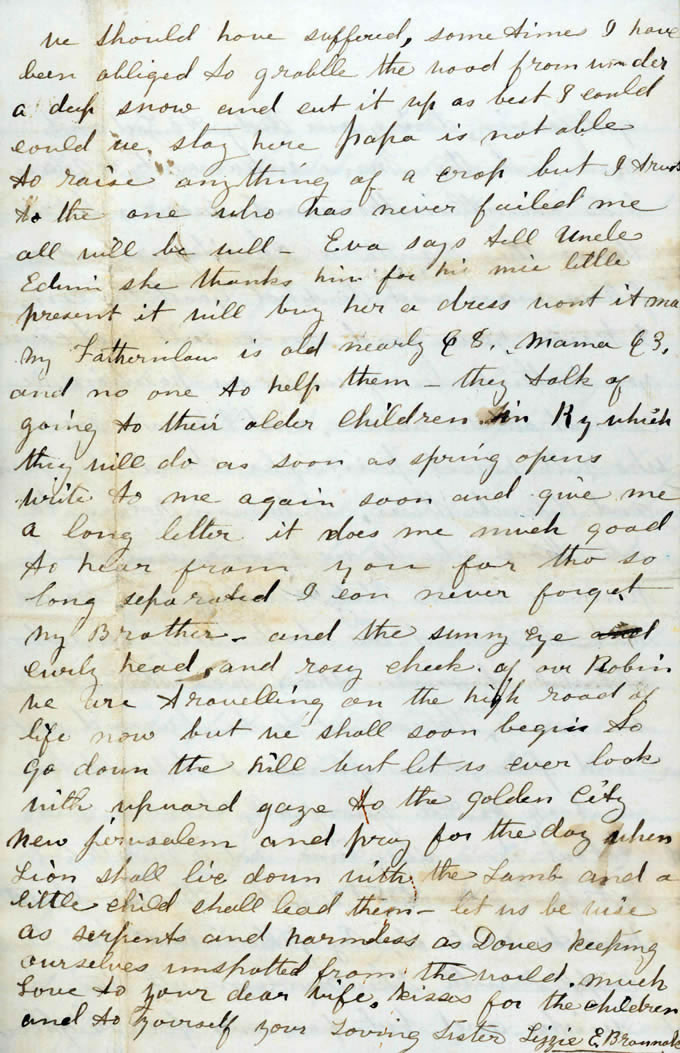 we should have suffered, some times I have
been obliged to grabble the wood from under
a deep snow and cut it up as best I could
could we stay here papa is not able
to raise anything of a crop but I trust
to the one who has never failed me
all will be well - Eva says tell Uncle
Edwin she thanks him for his nice little
present it will buy her a dress wont it ma
My Fatherinlaw is old nearly 68. Mama 63.
and no one to help them - they talk of
going to their older children in Ky which
they will do as soon as spring opens
write to me again soon and give me
a long letter it does me much good
to hear from you for tho so
long separated I can never forget
My Brother - and the sunny eye and
curly head, and rosy cheek. of our Robin
we are travelling on the high road of
life now but we shall soon begin to
go down the hill but let us ever look
with upward gaze to the golden City
new jerusalem and pray for the day when
Lion shall lie down with the Lamb and a
little child shall lead them - let us be wise
as serpents and harmless as Doves keeping
ourselves unspotted from the world. much
Love to your dear wife. kisses for the children
and to yourself your Loving Sister Lizzie E